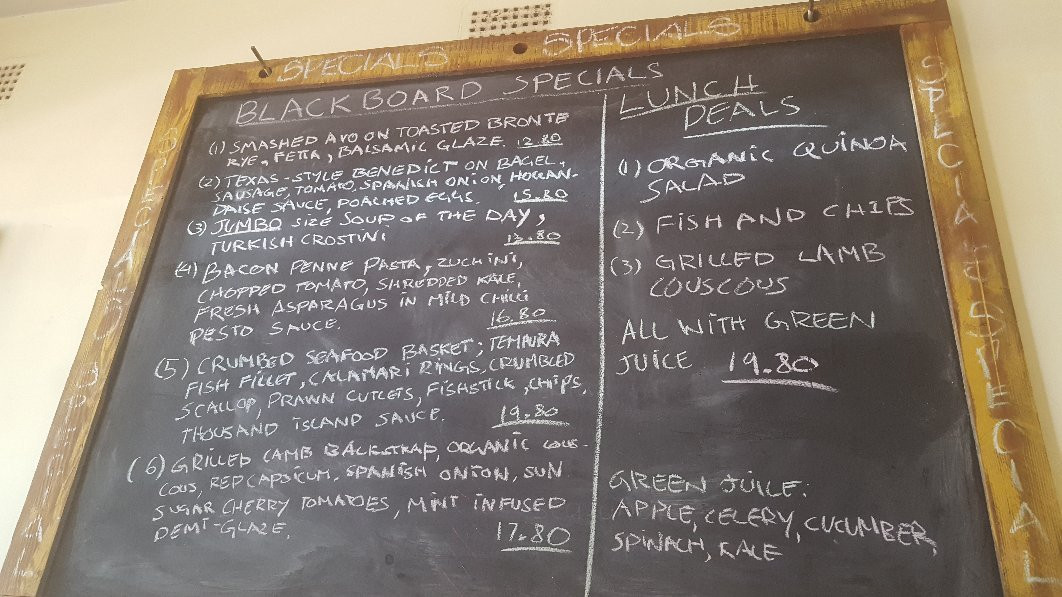 SPECIALS SPECIALS
BLACKBOARD SPECIALS
(1) SMASHED AVO ON TOASTED BRONTE
RYE, FETTA, BALSAMIC GLAZE. 12.80
(2) TEXAS-STYLE BENEDICT ON BAGEL,
SAUSAGE, TOMATO, SPANISH ONION, HOLLAN-
DAISE SAUCE, POACHED EGGS. 15.80
(3) JUMBO SIZE SOUP OF THE DAY,
TURKISH CROSTINI 13.80
(4) BACON PENNE PASTA, ZUCHINI,
CHOPPED TOMATO, SHREDDED KALE,
FRESH ASPARAGUS IN MILD CHILLI
PESTO SAUCE. 16.80
(5) CRUMBED SEAFOOD BASKET; TEMPURA
FISH FILLET, CALAMARI RINGS, CRUMBED
SCALLOP, PRAWN CUTLETS, FISHSTICK, CHIPS,
THOUSAND ISLAND SAUCE. 19.80
(6) GRILLED LAMB BACKSTRAP, ORGANIC COUS-
COUS, RED CAPSICUM, SPANISH ONION, SUN
SUGAR CHERRY TOMATOES, MINT INFUSED
DEMI-GLAZE. 17.80
LUNCH
DEALS
(1) ORGANIC QUINOA
SALAD
(2) FISH AND CHIPS
(3) GRILLED LAMB
COUSCOUS
ALL WITH GREEN
JUICE 19.80
GREEN JUICE:
APPLE, CELERY, CUCUMBER,
SPINACH, KALE